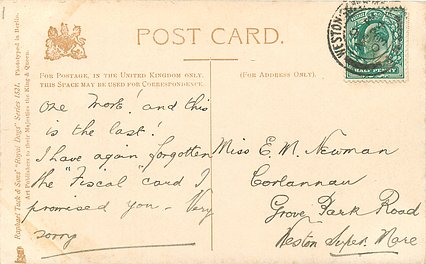 POST CARD.
FOR POSTAGE, IN THE UNITED KINGDOM ONLY,
THIS SPACE MAY BE USED FOR CORRESPONDENCE.
(FOR ADDRESS ONLY.)
HALF PENNY
WESTON
Raphael Tuck & Sons' "Royal Dogs" Series 1521. Phototyped in Berlin.
Art Publishers to their Majesties the King & Queen.
One more! and this
is the last!
I have again forgotten
the "Fiscal" card I
promised you - Very
sorry
Miss E. M. Newman
Corlannau
Grove Park Road
Weston Super Mare